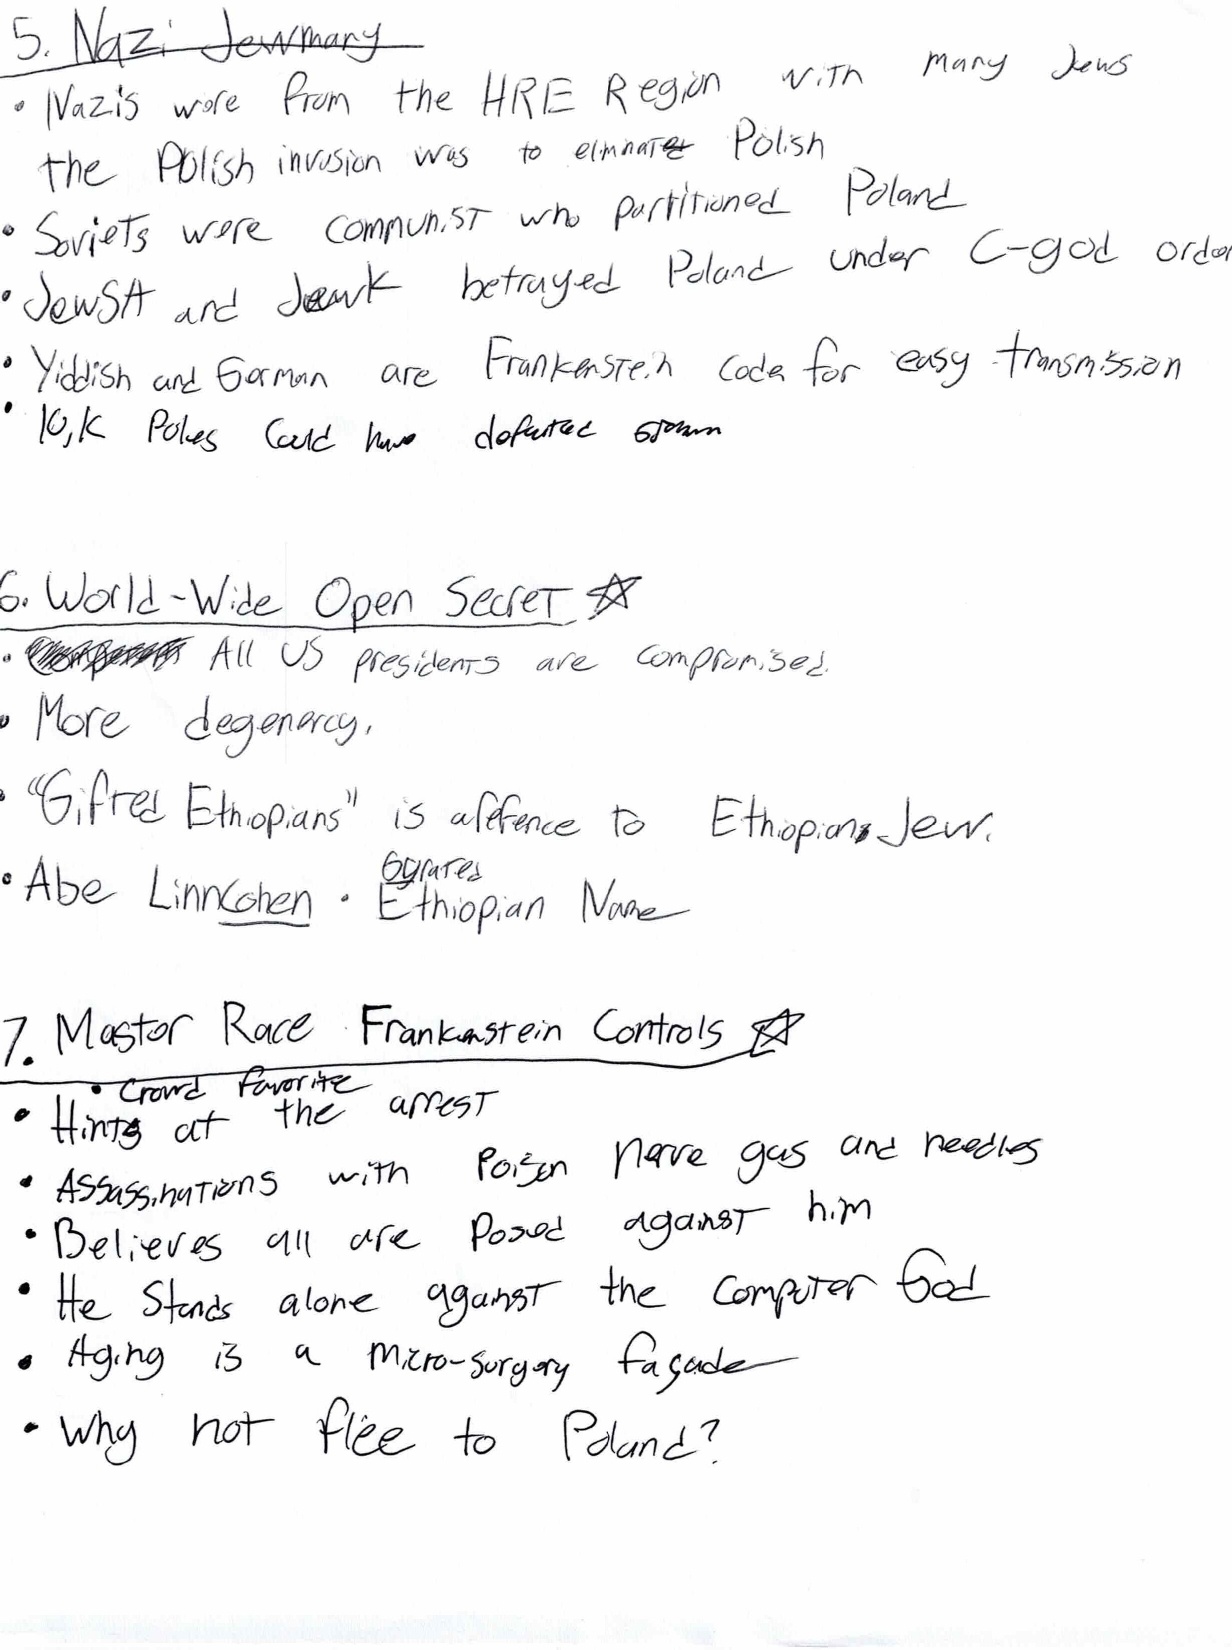 5. Nazi Jewmany
• Nazis were from the HRE Region with many Jews
the Polish invasion was to elminate Polish
• Soviets were communist who partitioned Poland
• JewSA and JewK betrayed Poland under C-god order
• Yiddish and German are Frankenstein Code for easy transmission
• 10,K Poles Could have defeated
6. World-Wide Open Secret ☆
• All US presidents are compromised.
• More degenercy.
• "Gifted Ethiopians" is a refence to Ethiopians Jew.
Gyrated
• Abe LinnCohen · Ethiopian Name
7. Master Race Frankenstein Controls ☆
• Crowd Favorite
• Hints at the arrest
• Assassinations with Poison nerve gas and needles
• Believes all are Posed against him
• He Stands alone against the Computer God
• Aging is a micro-surgery façade
• Why not flee to Poland?